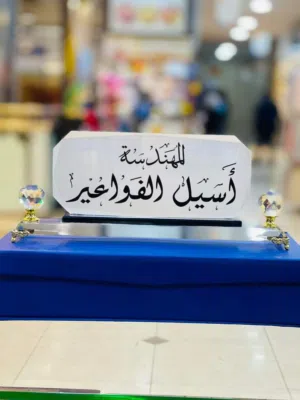 المهندسة
أَسيل الفواعير